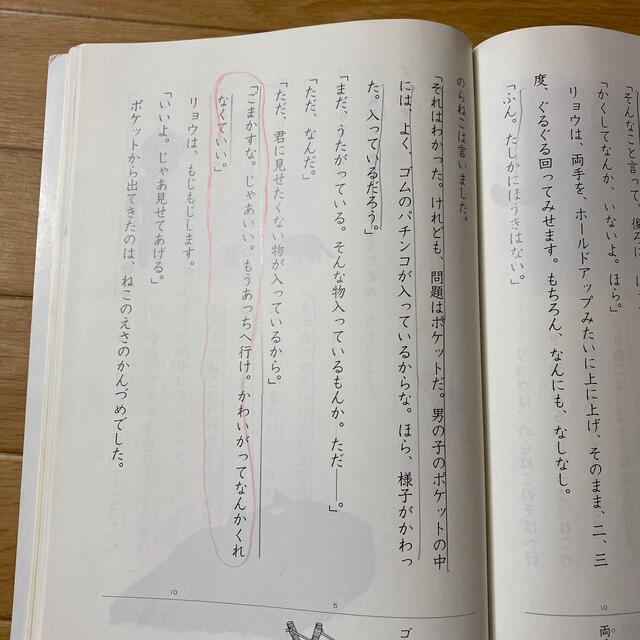 「そんなこと言って、後ろに
「かくしてなんか、いないよ。ほら。」
リョウは、両手を、ホールドアップみたいに上に上げ、そのまま、二、三
度、ぐるぐる回ってみせます。もちろん、なんにも、なしなし。
「ふん。たしかにほうきはない。」
のらねこは言いました。
「それはわかった。けれども、問題はポケットだ。男の子のポケットの中
には、よく、ゴムのパチンコが入っているからな。ほら、様子がかわっ
た。入っているだろう。」
「まだ、うたがっている。そんな物入っているもんか。ただ――。」
「ただ、なんだ。」
「ただ、君に見せたくない物が入っているから。」
「ごまかすな。じゃあいい。もうあっちへ行け。かわいがってなんかくれ
なくていい。」
リョウは、もじもじします。
「いいよ。じゃあ見せてあげる。」
ポケットから出てきたのは、ねこのえさのかんづめでした。
10
両
ゴ
5
10